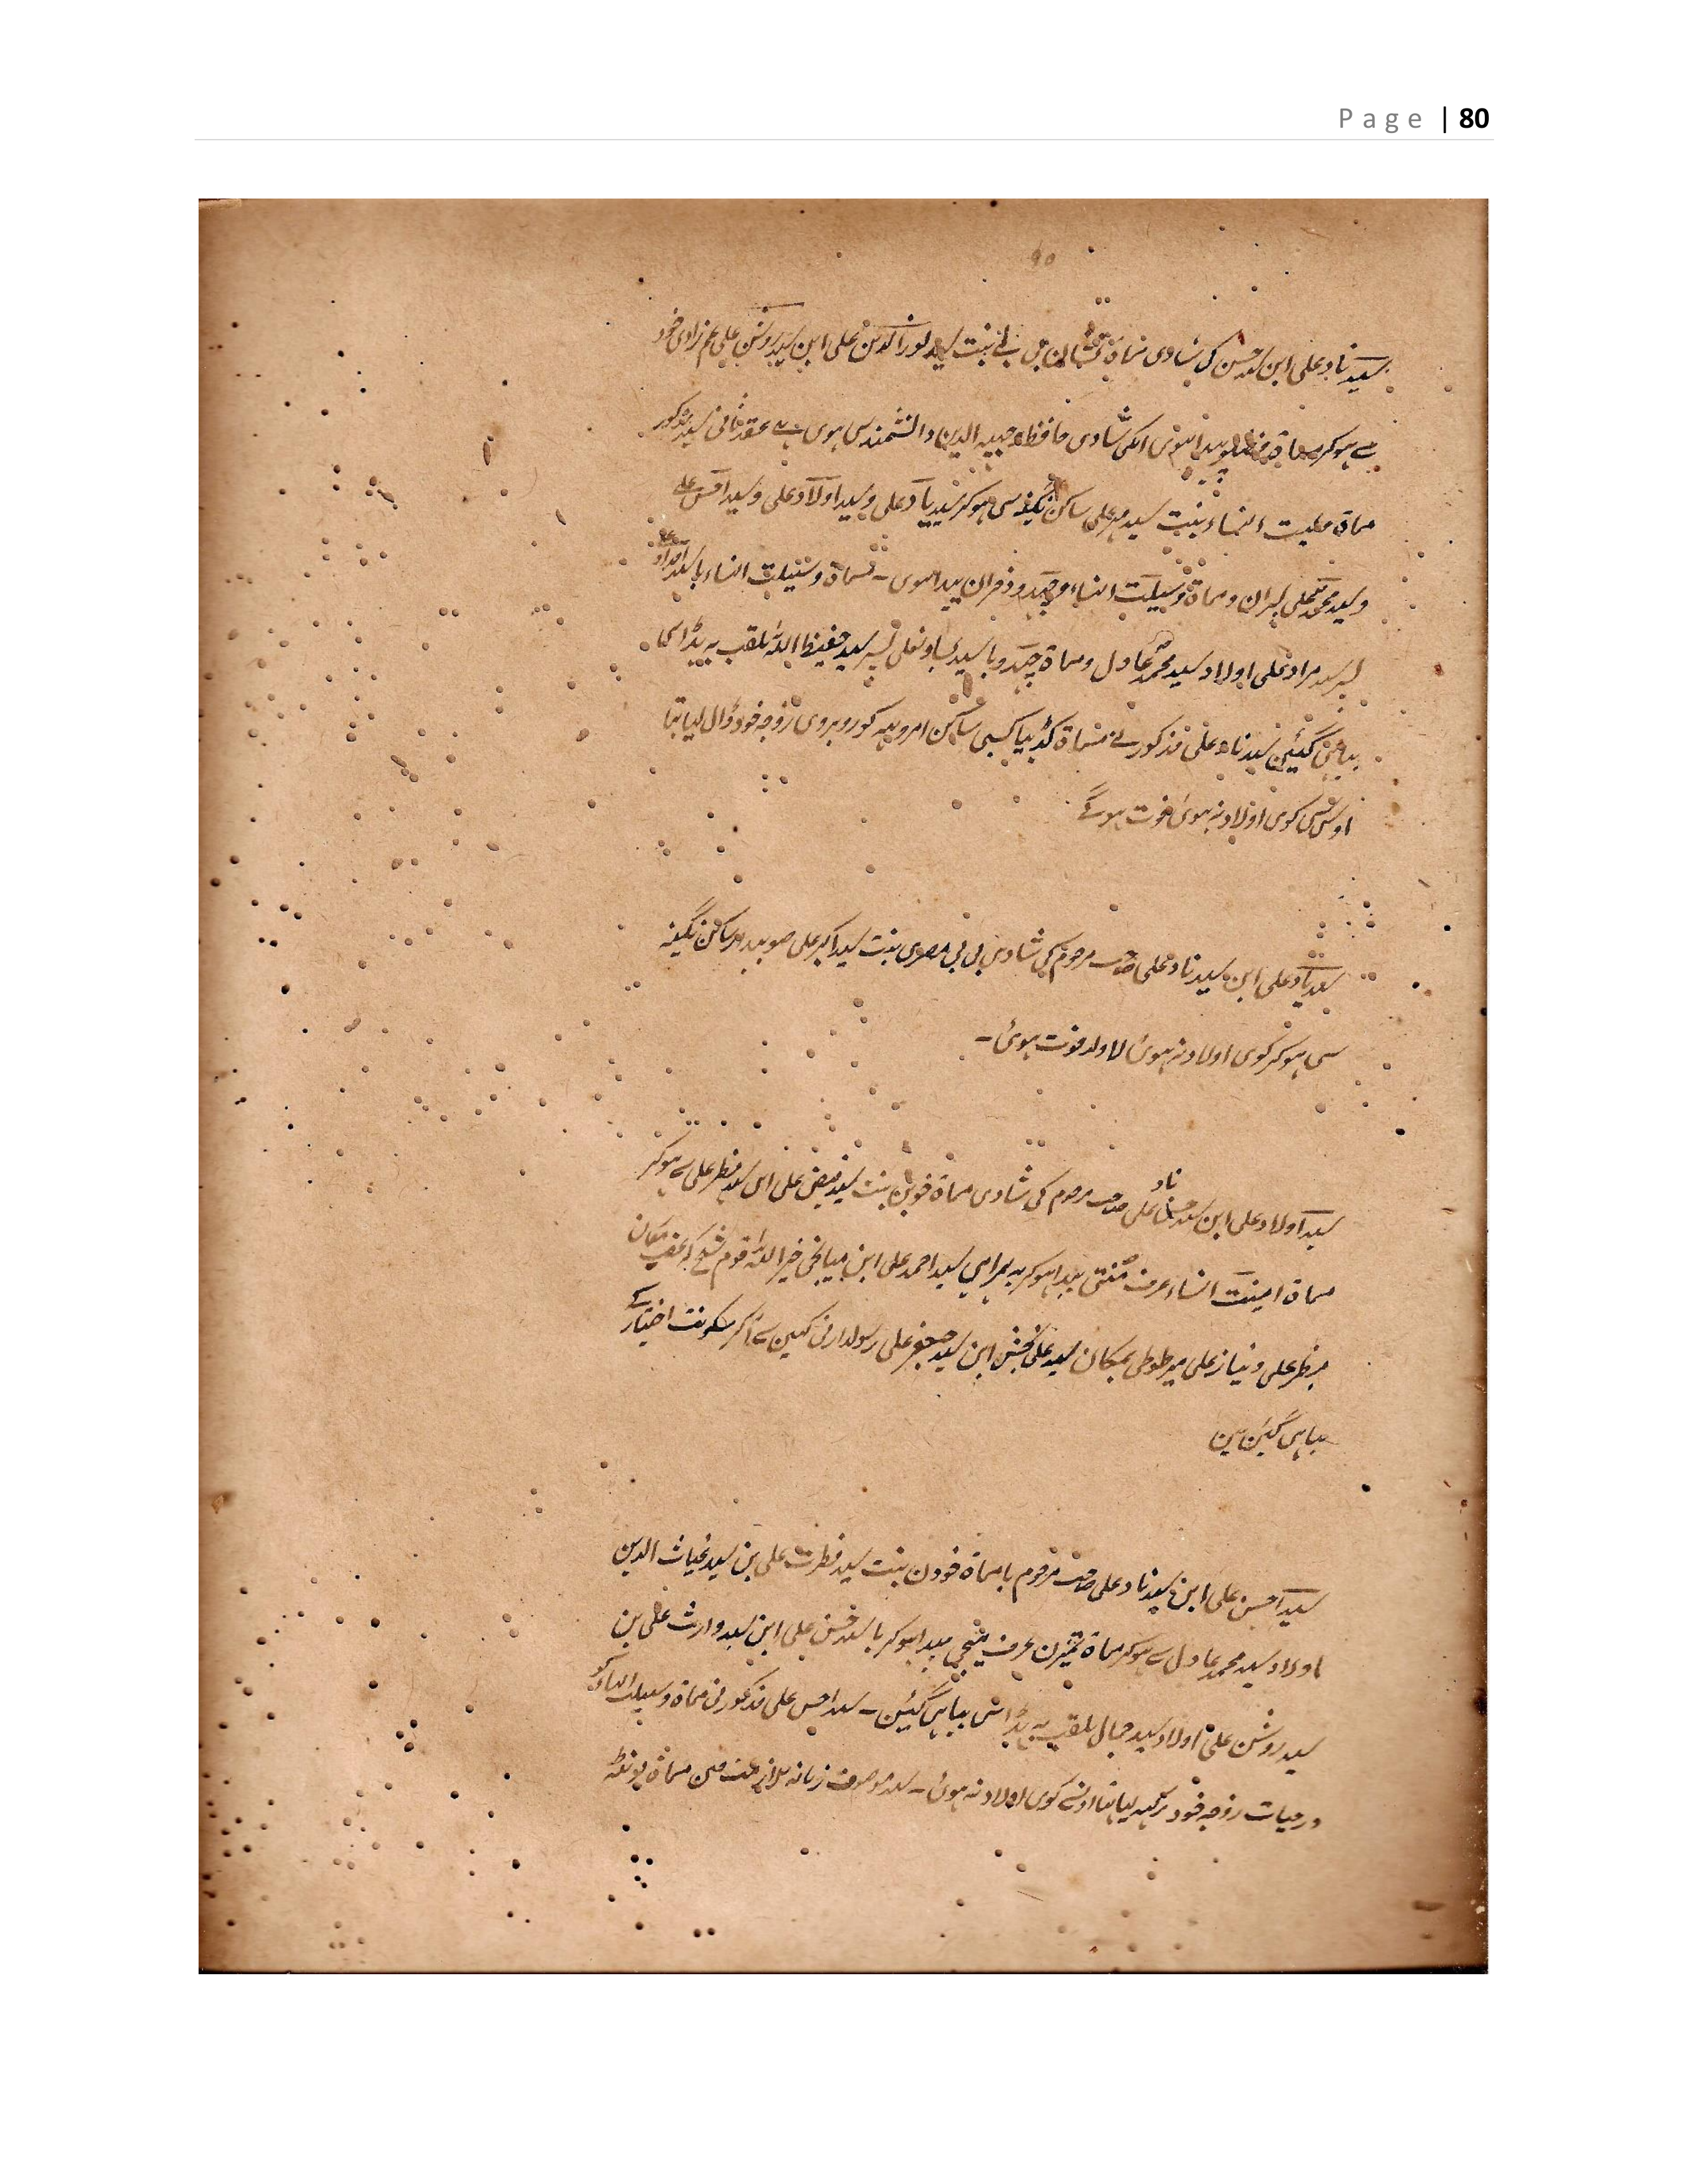 Page | 80
سید ناد علی ابن سید حسن کی شادی مسماة بنت سید نور الدین علی ابن سید روشن علی عم زادی خود
سے ہوکر مسماة پیدا ہوی انکی شادی حافظ وجیہ الدین دانشمند سی ہوی ہے عقد ثانی سید مذکور
مماة النساء بنت سید مہر علی ساکن نگینہ سی ہوکر سید یاد علی و سید اولاد علی و سید احسن علی
و سید محمد علی پسران و مماة وسیلت النساء و چندو دختران پیدا ہوی - مسماة وسیلت النساء با سید امداد علی
پسر سید مراد علی اولاد سید محمد عادل و مماة چندو با سید بساون علی پسر سید حفیظ اللہ ملقب بہ پڈراسی
بیاہی گئین سید ناد علی مذکور نے مسماة کسبی ساکن امروہہ کو روبروی زوجہ خود ڈال لیا تہا
اوس سی کوی اولاد نہ ہوئ فوت ہوگے
سید یاد علی ابن سید ناد علی صاحب مرحوم کی شادی بی بی مصری بنت سید اکبر علی صوبیدار ساکن نگینہ
سی ہوکر کوی اولاد نہ ہوئ لاولد فوت ہوئ -
سید اولاد علی ابن سید ناد علی صاحب مرحوم کی شادی مماة خوبن بنت سید فیض علی ابن سید مظہر علی سے ہوکر
مماة امینت النساء عرف پیدا ہوکر بہ ہمراہی سید احمد علی ابن میانجی خیر اللہ قوم شیخ کہ عقب مکان
مظہر علی و نیاز علی میر طوطی بمکان سید علی بخش ابن سید جعفر علی رسولدار نی کہین سے آکر سکونت اختیار کے
بیاہی گئین ہین
سید احسن علی ابن سید ناد علی صاحب مرحوم با مماة خودن بنت سید فطرت علی بن سید غیاث الدین
اولاد سید محمد عادل سے ہوکر مماة عرف پیدا ہوکر با سید حسن علی ابن سید وارث علی بن
سید روشن علی اولاد سید جمال ملقب بہ پڈراسی بیاہی گئین - سید احسن علی مذکور نی مماة وسیلت النساء کو
در حیات زوجہ خود لیا تہا اونسے کوی اولاد نہ ہوئ - سید موصوف زمانہ ملازمت مین مسماة